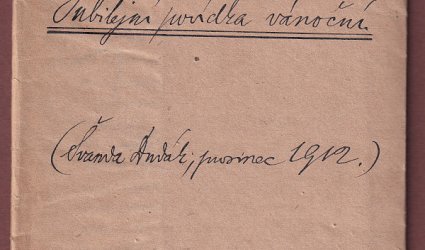 Jubilejní povídka vánoční
(Švanda dudák, prosinec 1912.)